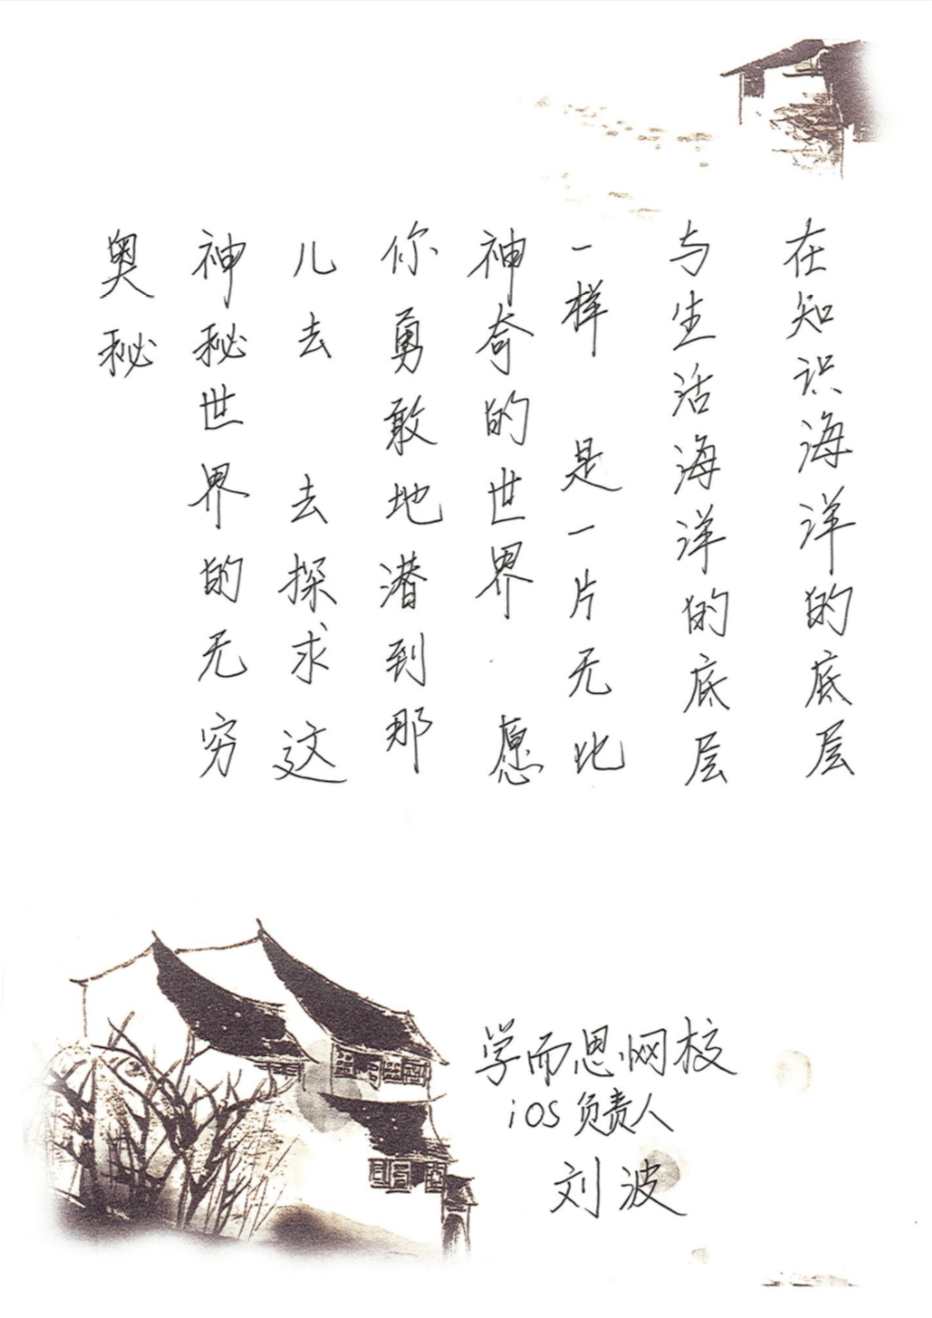 在知识海洋的底层
与生活海洋的底层
一样 是一片无比
神奇的世界. 愿
你勇敢地潜到那
儿去 去探求这
神秘世界的无穷
奥秘
学而思网校
iOS负责人
刘波